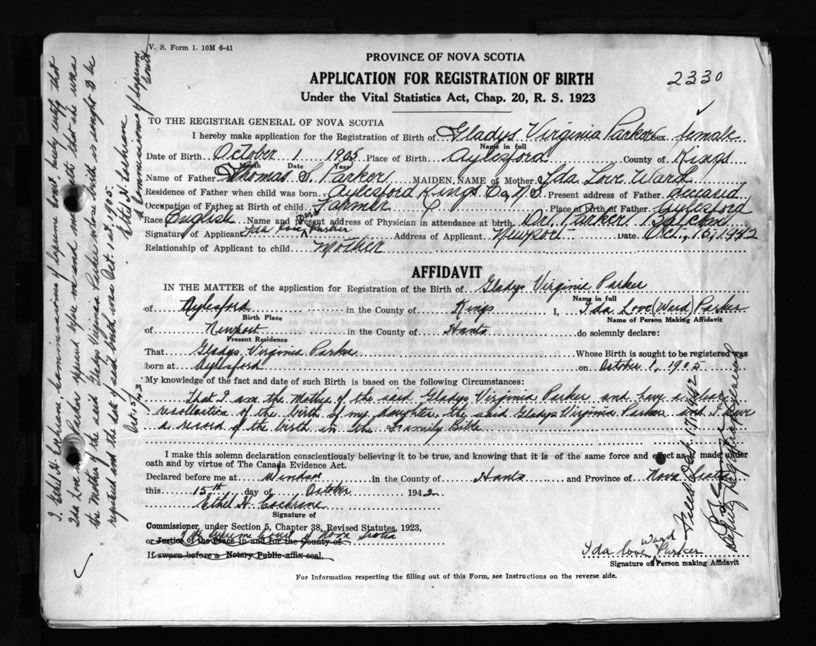 V. S. Form 1. 10M 6-41
PROVINCE OF NOVA SCOTIA
APPLICATION FOR REGISTRATION OF BIRTH
2330
Under the Vital Statistics Act, Chap. 20, R. S. 1923
TO THE REGISTRAR GENERAL OF NOVA SCOTIA
I hereby make application for the Registration of Birth of Gladys Virginia Parker sex female
Name in full
Date of Birth October 1 1905 Place of Birth Aylesford County of Kings
Month Date Year
Name of Father Thomas S. Parker MAIDEN NAME of Mother Ida Love Ward
Residence of Father when child was born Aylesford Kings Co, N S. Present address of Father deceased
Occupation of Father at Birth of child Farmer Place of Birth of Father Aylesford
Race English Name and Present address of Physician in attendance at birth Dr. Parker
Signature of Applicant Ida Love Ward Parker Address of Applicant Newport Date Oct., 15, 1942
Relationship of Applicant to child Mother
AFFIDAVIT
IN THE MATTER of the application for Registration of the Birth of Gladys Virginia Parker
Name in full
of Aylesford in the County of Kings I, Ida Love (Ward) Parker
Birth Place Name of Person Making Affidavit
of Newport in the County of Hants do solemnly declare:
Present Residence
That Gladys Virginia Parker Whose Birth is sought to be registered was
born at Aylesford on October 1, 1905
My knowledge of the fact and date of such Birth is based on the following Circumstances:
That I am the Mother of the said Gladys Virginia Parker and have a clear
recollection of the birth of my daughter, the said Gladys Virginia Parker and I have
a record of the birth in the Family Bible
I make this solemn declaration conscientiously believing it to be true, and knowing that it is of the same force and effect as if made under
oath and by virtue of The Canada Evidence Act.
Declared before me at Windsor in the County of Hants and Province of Nova Scotia
this 15th day of October 1942
Ethel H. Cochrane
Signature of
Commissioner, under Section 5, Chapter 38, Revised Statutes, 1923,
or Justice of the Peace in and for the County of
Supreme Court of Nova Scotia
If sworn before a Notary Public affix seal.
Ida Love Ward Parker
Signature of Person making Affidavit
For Information respecting the filling out of this Form, see Instructions on the reverse side.
I, Ethel H. Cochrane, Commissioner of Supreme Court, hereby certify that
Ida Love Parker appeared before me and made oath that she was
the Mother of the said Gladys Virginia Parker whose birth is sought to be
registered and the date of said birth was Oct. 1st, 1905.
Ethel H. Cochrane
A Commissioner of Supreme
Court
Filed Oct. 17 1942
Deputy Registrar General